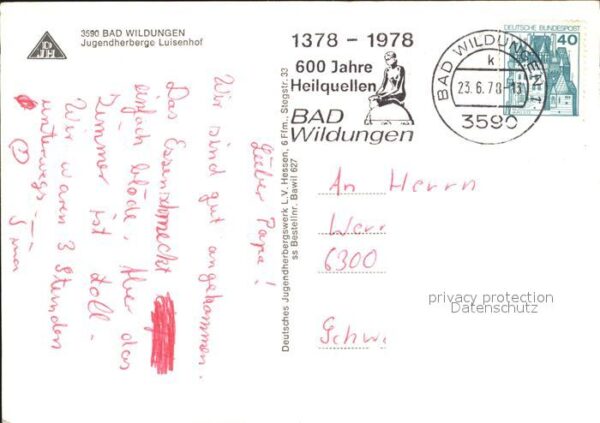 3590 BAD WILDUNGEN
Jugendherberge Luisenhof
DJH
1378 - 1978
600 Jahre
Heilquellen
BAD
Wildungen
BAD WILDUNGEN 1
k
23.6.78-13
3590
DEUTSCHE BUNDESPOST
40
Deutsches Jugendherbergswerk L.V. Hessen, 6 Ffm., Stegstr. 33
ss Bestellnr. Bawil 627
Lieber Papa!
Wir sind gut angekommen.
Das Essen schmeckt
einfach blöde. Aber das
Zimmer ist toll.
Wir waren 3 Stunden
unterwegs.
An Herrn
Werr
6300
Schw
privacy protection
Datenschutz